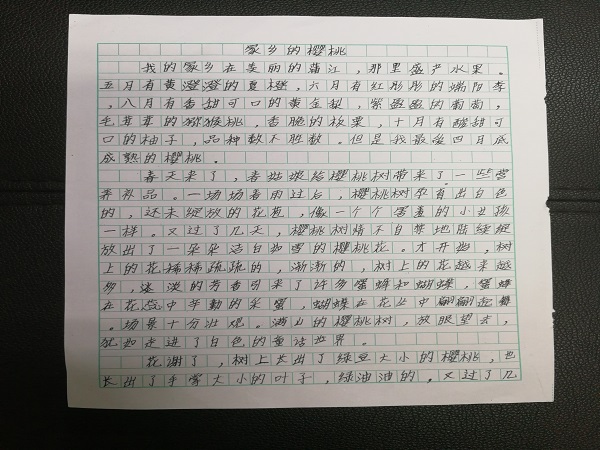 家乡的樱桃
我的家乡在美丽的蒲江，那里盛产水果。
五月有黄澄澄的夏橙，六月有红彤彤的端阳李
，八月有香甜可口的黄金梨，紫盈盈的葡萄，
毛茸茸的猕猴桃，香脆的板栗，十月有酸甜可
口的柚子，品种数不胜数。但是我最爱四月底
成熟的樱桃。
春天来了，春姑娘给樱桃树带来了一些营
养补品。一场场春雨过后，樱桃树枝冒出白色
的，还未绽放的花苞，像一个个害羞的小女孩
一样。又过了几天，樱桃树情不自禁地陆续绽
放出了一朵朵洁白如雪的樱桃花。才开始，树
上的花稀稀疏疏的，渐渐的，树上的花越来越
多，淡淡的芳香引来了许多蜜蜂和蝴蝶，蜜蜂
在花蕊中辛勤的采蜜，蝴蝶在花丛中翩翩起舞
。场景十分壮观。满山的樱桃树，放眼望去，
就如走进了白色的童话世界。
花谢了，树上长出了绿豆大小的樱桃，也
长出了手掌大小的叶子，绿油油的。又过了几